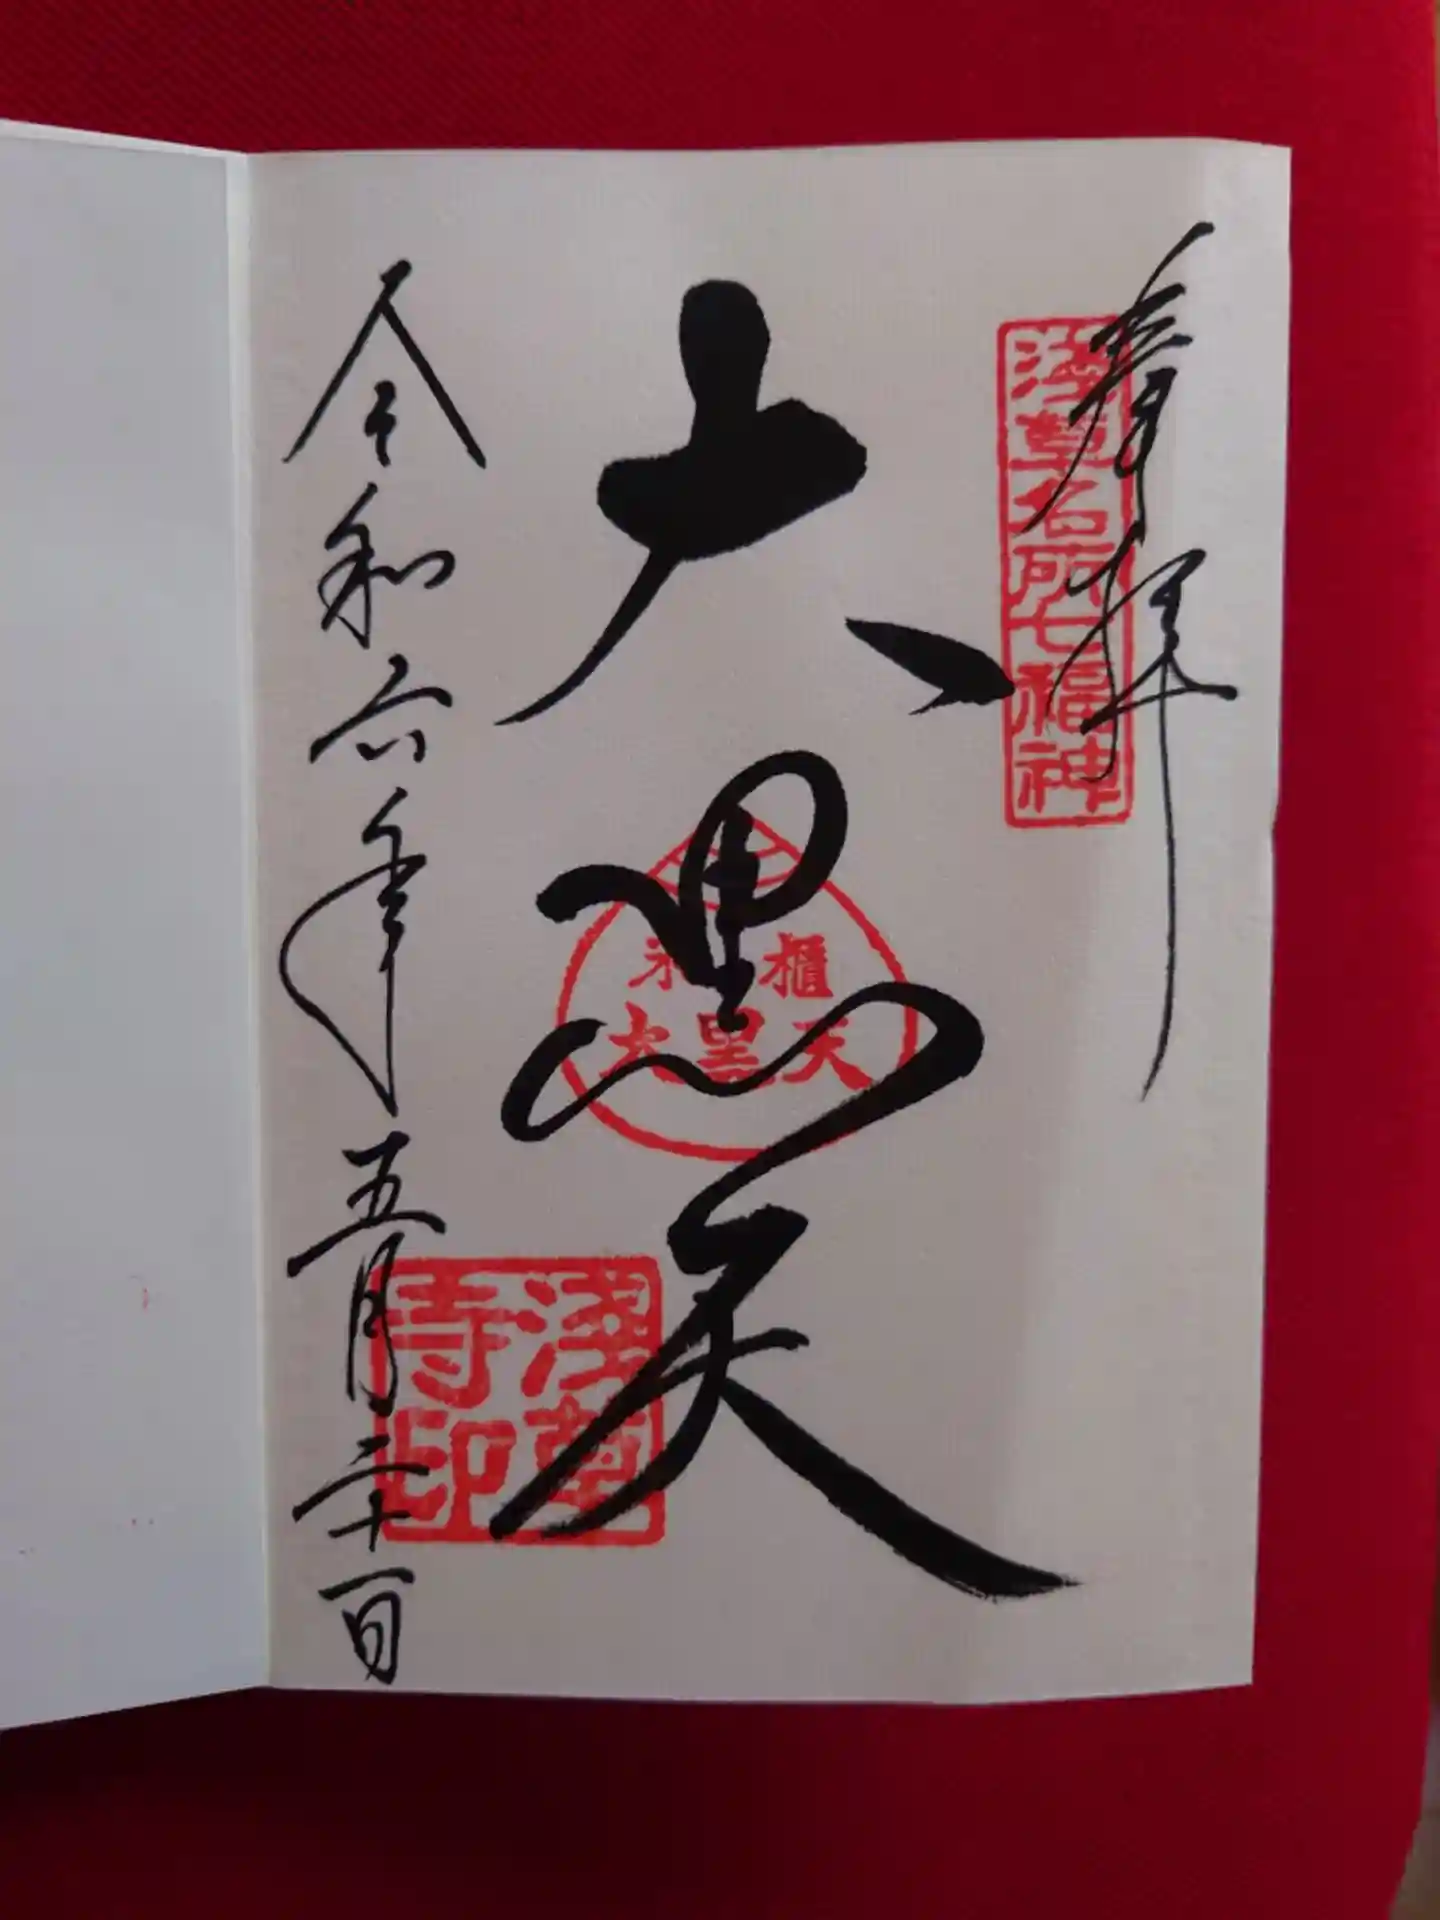 奉拝
浅草名所七福神
大黒天
米櫃
大黒天
浅草
寺印
令和六年五月二十一日